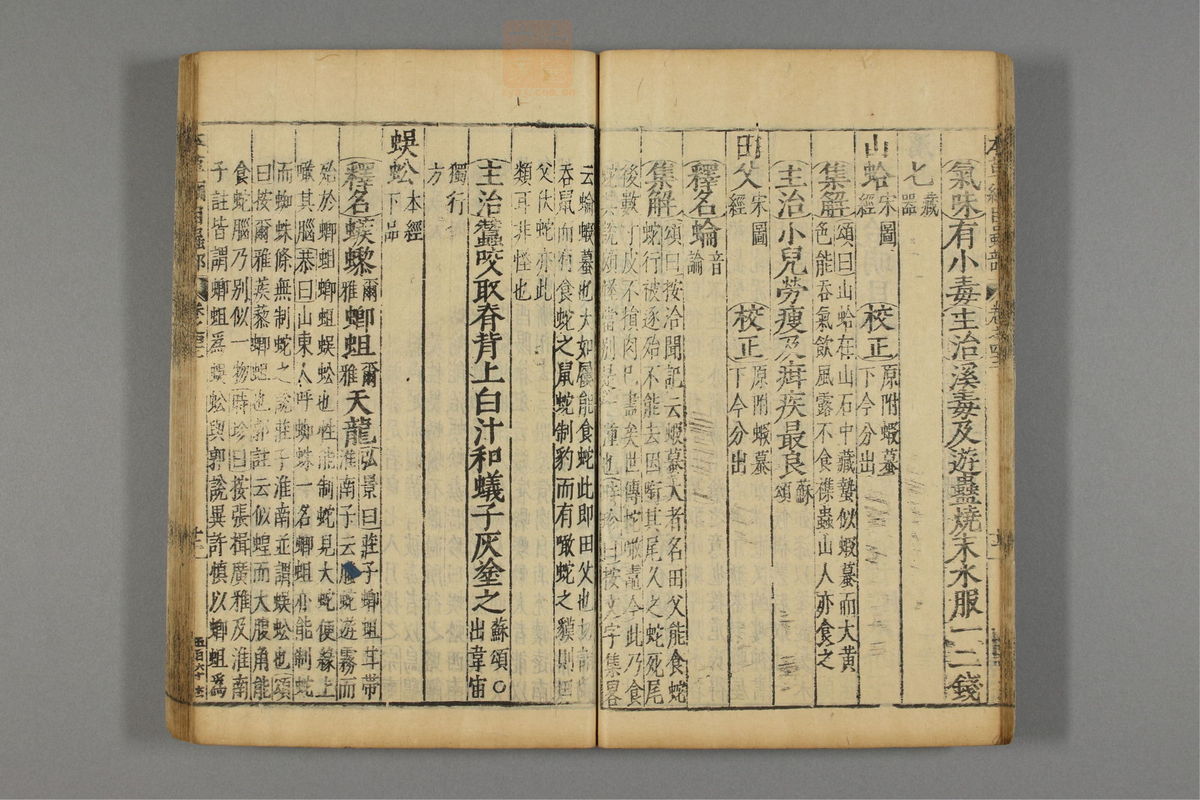 氣味有小毒主治溪毒及遊蠱燒末水服一二錢
匕藏器
山蛤宋圖經 校正原附蝦蟇下今分出
集解頌曰山蛤在山石中藏蟄似蝦蟇而大黃
色能吞氣飲風露不食雜蟲山人亦食之
主治小兒勞瘦及疳疾最良蘇頌
田父宋圖經 校正原附蝦蟇下今分出
釋名蜦音論
集解頌曰按洽聞記云蝦蟇大者名田父能食蛇
蛇行被逐殆不能去因銜其尾久之蛇死尾
後數寸皮不損肉已盡矣世傳蛇噉鼃今此乃食
蛇其說頗怪當別是一種也時珍曰按文字集畧
云蜦蝦蟇也大如屨能食蛇此即田父也
吞鼠而有食蛇之鼠蛇制豹而有噉蛇之貘則田
父伏蛇亦此
類耳非怪也
主治蠶咬取脊背上白汁和蟻子灰塗之蘇頌○出韋宙
獨行
方
蜈蚣本經下品
釋名蒺蠡爾雅蝍蛆爾雅天龍弘景曰莊子蝍蛆甘帶
淮南子云騰蛇遊霧而
殆於蝍蛆蝍蛆蜈蚣也性能制蛇見大蛇便緣上
噉其腦恭曰山東人呼蜘蛛一名蝍蛆亦能制蛇
而蜘蛛條無制蛇之說莊子淮南並謂蜈蚣也頌
曰按爾雅蒺藜蝍蛆也郭註云似蝗而大腹角能
食蛇腦乃別似一物時珍曰按張楫廣雅及淮南
子註皆謂蝍蛆爲蜈蚣與郭說異許慎以蝍蛆爲